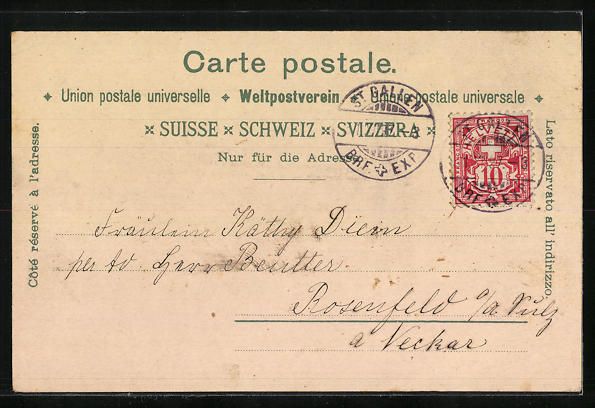 Carte postale.
Union postale universelle ✦ Weltpostverein ✦ Unione postale universale
SUISSE × SCHWEIZ × SVIZZERA
Nur für die Adresse.
Côté réservé à l'adresse.
Lato riservato all' indirizzo.
ST. GALLEN
BRF. EXP.
HELVETIA
10
ST. GALLEN
BRF. EXP.
Fräulein Käthy Diem
per ad Herr Beutter
Rosenfeld o/a Sulz
a Neckar